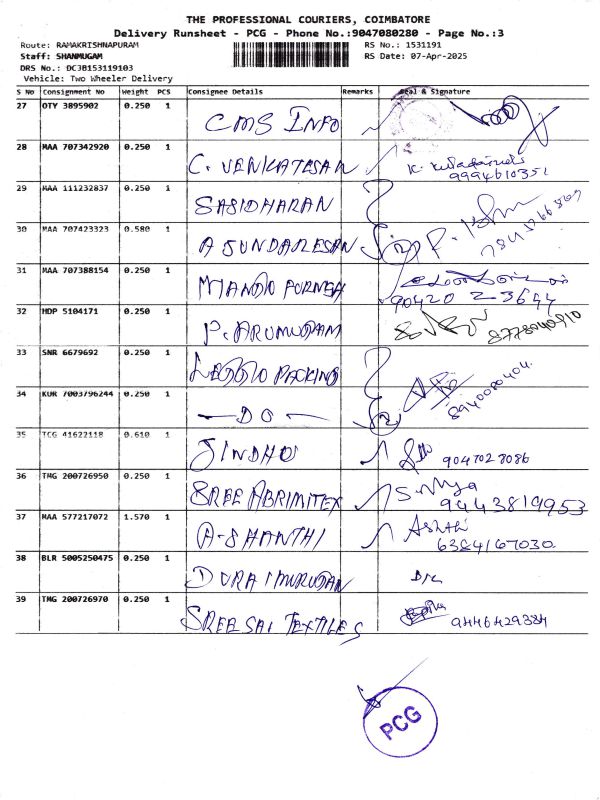 THE PROFESSIONAL COURIERS, COIMBATORE
Delivery Runsheet - PCG - Phone No.:9047080280 - Page No.:3
Route: RAMAKRISHNAPURAM RS No.: 1531191
Staff: SHANMUGAM RS Date: 07-Apr-2025
DRS No.: DCJB153119103
Vehicle: Two Wheeler Delivery
S No Consignment No Weight PCS Consignee Details Remarks Seal & Signature
27 OTY 3895902 0.250 1 CMS INFO
28 MAA 707342920 0.250 1 C. VENKATESAN
9994610351
29 MAA 111232837 0.250 1 SASIDHARAN
30 MAA 707423323 0.580 1 A SUNDARESAN
31 MAA 707388154 0.250 1
90420 23644
32 HDP 5104171 0.250 1 P. ARUMUGAM
33 SNR 6679692 0.250 1 PACKING
34 KUR 7003796244 0.250 1 DO
8940080404
35 TCG 41622118 0.610 1 JINDHO
9047028086
36 TMG 200726950 0.250 1 SREE ABRIMITEX
9443819953
37 MAA 577217072 1.570 1 A-SHANTHI
6384167030
38 BLR 5005250475 0.250 1 DURAIMURUGAN
39 TMG 200726970 0.250 1 SREE SAI TEXTILES
9446429384
PCG